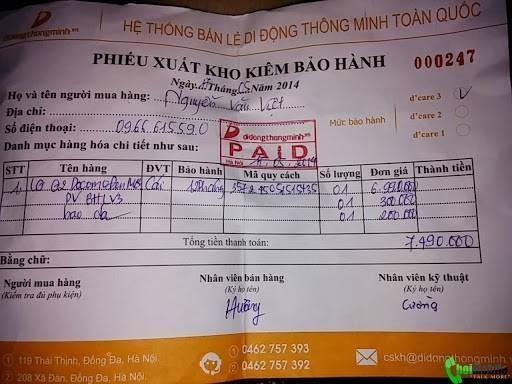 didongthongminh.vn
HỆ THỐNG BÁN LẺ DI ĐỘNG THÔNG MINH TOÀN QUỐC
PHIẾU XUẤT KHO KIÊM BẢO HÀNH
000247
Ngày Tháng 05 Năm 2014
Họ và tên người mua hàng: Nguyễn Văn Việt
Địa chỉ:
Số điện thoại: 0966.615590
Mức bảo hành
d'care 3 V
d'care 2
d'care 1
didongthongminh.vn
PAID
Hà Nội
Danh mục hàng hóa chi tiết như sau:
STT Tên hàng ĐVT Bảo hành Mã quy cách Số lượng Đơn giá Thành tiền
1 LG G2 Docomo Đen Mới Cái 12 tháng 01 6.990.000
DV BH LV3 01 300.000
bao da 01 200.000
Tổng tiền thanh toán: 7.490.000
Bằng chữ:
Người mua hàng Nhân viên bán hàng Nhân viên kỹ thuật
(Kiểm tra đủ phụ kiện) (Ký họ tên) (Ký họ tên)
Hường Cường
1 119 Thái Thịnh, Đống Đa, Hà Nội. 0462 757 393 cskh@didongthongminh
2 208 Xã Đàn, Đống Đa, Hà Nội. 0462 757 392
TALK MORE